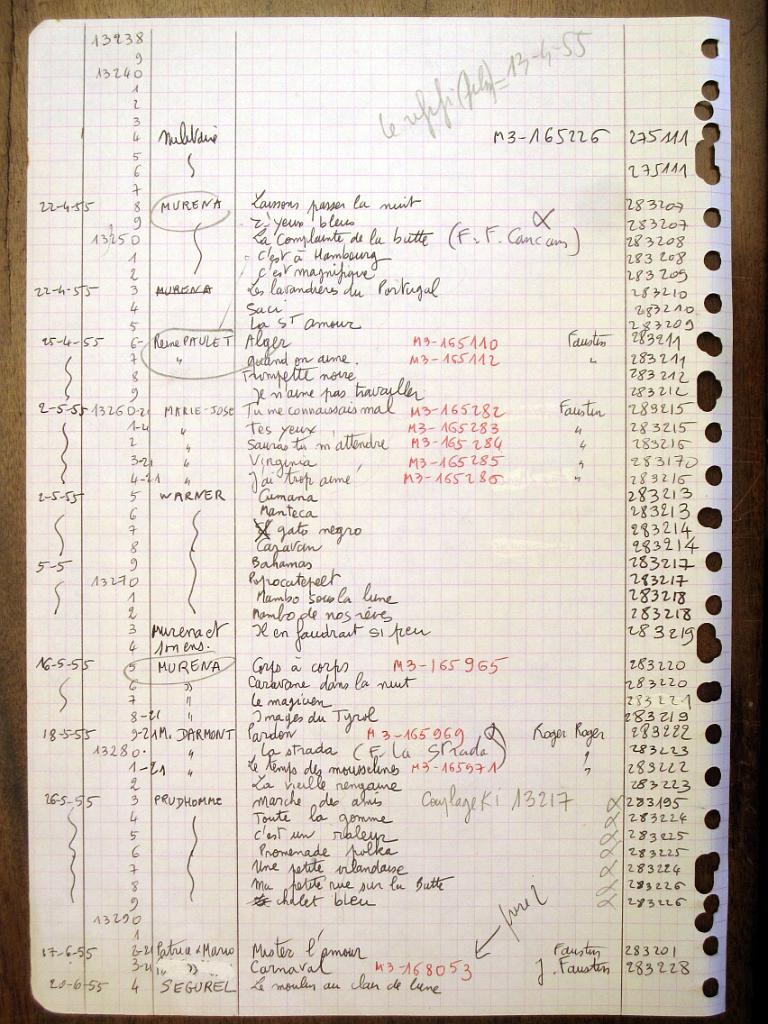 13238
9
13240
1
2
3
4 militaire M3-165226 275111
5
6 275111
7
(film) = 13-4-55
22-4-55 8 MURENA Laissons passer la nuit 283207
9 Z'yeux bleus 283207
13250 La Complainte de la butte (F. F. Cancan) 283208
1 C'est à Hambourg 283208
2 C'est magnifique 283209
22-4-55 3 MURENA Les lavandières du Portugal 283210
4 Saci 283210
5 La St amour 283209
25-4-55 6- Reine PAULET Alger M3-165110 Faustin 283211
7 " Quand on aime. M3-165112 " 283211
8 Trompette noire 283212
9 Je n'aime pas travailler 283212
2-5-55 13260-21 MARIE-JOSÉ Tu me connaissais mal M3-165282 Faustin 283215
1-21 " Tes yeux M3-165283 " 283215
2 " Sauras tu m'attendre M3-165284 " 283216
3-21 " Virginia M3-165285 " 283170
4-21 " J'ai trop aimé M3-165286 " 283216
2-5-55 5 WARNER Cumana 283213
6 Manteca 283213
7 El gato negro 283214
8 Caravan 283214
5-5 9 Bahamas 283217
13270 Popocatepelt 283217
1 Mambo sous la lune 283218
2 Mambo de nos rêves 283218
3 Murena et Il en faudrait si peu 283219
4 son ens.
16-5-55 5 MURENA Corps à corps M3-165965 283220
6 " Caravane dans la nuit 283220
7 " Le magicien 283221
8-21 " Images du Tyrol 283219
18-5-55 9-21 M. DARMONT Pardon M3-165969 Roger Roger 283222
13280. " La strada (F. La Strada) " 283223
1-21 " Le temps des mousselines M3-165971 " 283222
2 La vieille rengaine 283223
26-5-55 3 PRUDHOMME Marche des amis Couplage Ki 13217 283195
4 Toute la gomme 283224
5 C'est un raleur 283225
6 Promenade polka 283225
7 Une petite irlandaise 283224
8 Ma petite rue sur la Butte 283226
9 chalet bleu 283226
13290
1
17-6-55 2-21 Patrice & Mario Mister l'amour Faustin 283201
3-21 " " Carnaval M3-168053 J. Faustin 283228
20-6-55 4 SEGUREL Le moulin au clair de lune